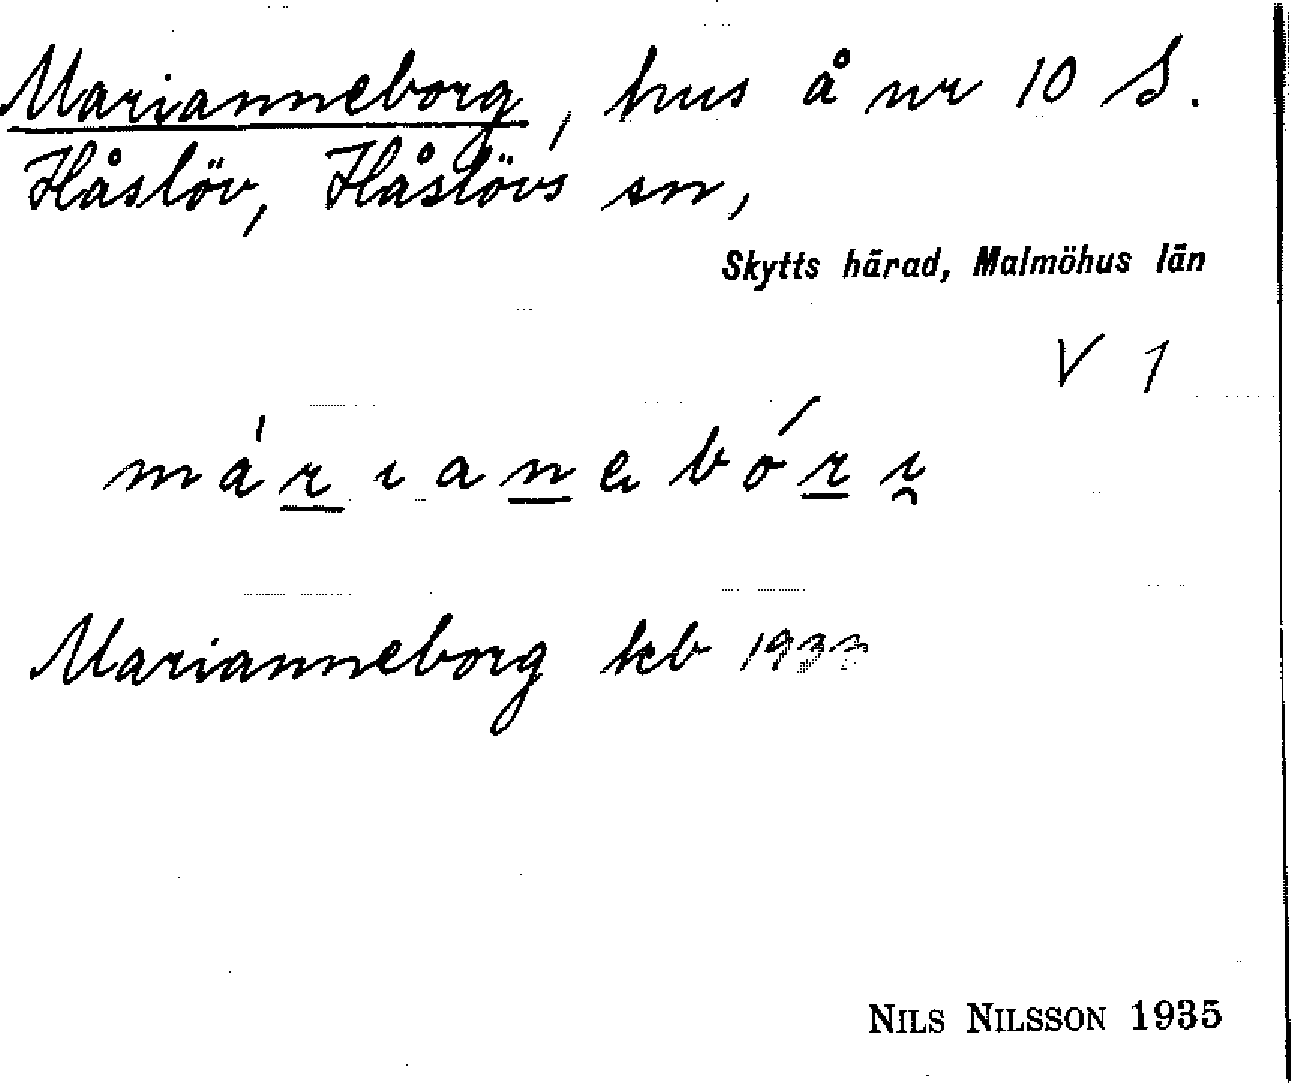 Marianneborg, hus å nr 10 S.
Håslöv, Håslövs sn,
Skytts härad, Malmöhus län
V 1
márıanebórı̯
Marianneborg kb 1933
NILS NILSSON 1935